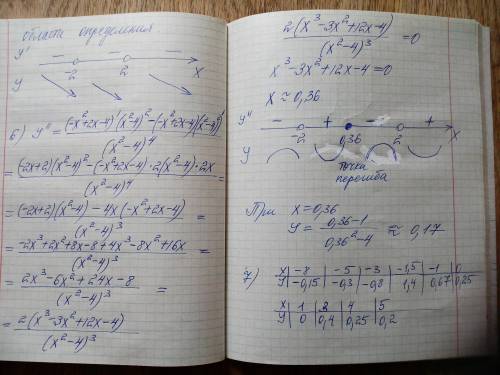 области определения.
y' − − − x
-2 2
y
6) y'' = ((-x²+2x-4)'(x²-4)² - (-x²+2x-4)((x²-4)²)')/(x²-4)⁴ =
= ((-2x+2)(x²-4)² - (-x²+2x-4)·2(x²-4)·2x)/(x²-4)⁴ =
= ((-2x+2)(x²-4) - 4x(-x²+2x-4))/(x²-4)³ =
= (-2x³+2x²+8x-8+4x³-8x²+16x)/(x²-4)³ =
= (2x³-6x²+24x-8)/(x²-4)³ =
= 2(x³-3x²+12x-4)/(x²-4)³
2(x³-3x²+12x-4)/(x²-4)³ = 0
x³-3x²+12x-4=0
x ≈ 0,36
y'' − + − + x
-2 0,36 2
y
точка
перегиба
При x=0,36
y = (0,36-1)/(0,36²-4) ≈ 0,17
7) x | -8 | -5 | -3 | -1,5 | -1 | 0
y | -0,15 | -0,3 | -0,8 | 1,4 | 0,67 | 0,25
x | 1 | 3 | 4 | 5
y | 0 | 0,4 | 0,25 | 0,2